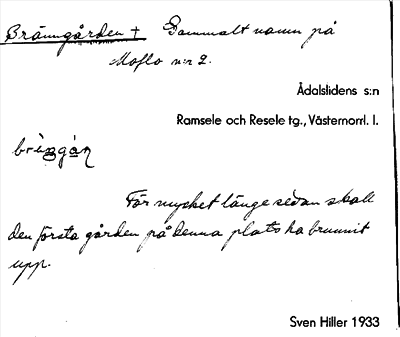 Bränngården + Gammalt namn på
Moflo n:r 2.
Ådalslidens s:n
Ramsele och Resele tg., Västernorrl. l.
För mycket länge sedan skall
den första gården på denna plats ha brunnit
upp.
Sven Hiller 1933